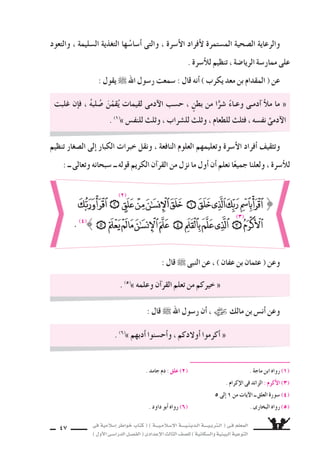 والرعاية الصحية المستمرة لأفراد الأسرة ، والتى أساسُها التغذية السليمة ، والتعود
على ممارسة الرياضة ، تنظيم للأسرة .
عن ( المقدام بن معد يكرب ) أنه قال : سمعت رسول الله ﷺ يقول :
« ما ملأ آدمـى وعـاءً شرًّا من بطنٍ ، حسب الآدمى لقيمات يُقِمْنَ صُلبهُ ، فإن غلبت
الآدمىّ نفسه ، فثلث للطعام ، وثلث للشراب ، وثلث للنفس » (١) .
وتثقيف أفراد الأسرة وتعليمهم العلوم النافعة ، ونقل خبرات الكبار إلى الصغار تنظيم
للأسرة ، ولعلنا جميعًا نعلم أن أول ما نزل من القرآن الكريم قوله ـ سبحانه وتعالى ـ :
﴿ ٱقۡرَأۡ بِٱسۡمِ رَبِّكَ ٱلَّذِي خَلَقَ ١ خَلَقَ ٱلۡإِنسَٰنَ مِنۡ عَلَقٍ (٢) ٢ ٱقۡرَأۡ وَرَبُّكَ
ٱلۡأَكۡرَمُ (٣) ٣ ٱلَّذِي عَلَّمَ بِٱلۡقَلَمِ ٤ عَلَّمَ ٱلۡإِنسَٰنَ مَا لَمۡ يَعۡلَمۡ ٥ ﴾ (٤) .
وعن ( عثمان بن عفان ) ، عن النبى ﷺ قال :
« خيركم من تعلم القرآن وعلمه » (٥) .
وعن أنس بن مالك ، أن رسول الله ﷺ قال :
« أكرموا أولادكم ، وأحسنوا أدبهم » (٦) .
(١) رواه ابن ماجة .
(٢) علق : دم جامد .
(٣) الأكرم : الزائد فى الإكرام .
(٤) سورة العلق ـ الآيات من ١ إلى ٥
(٥) رواه البخارى .
(٦) رواه أبو داود .
المعلم فـى ( التربيـة الـدينيـة الإسـلاميـة ) ( كتاب خواطر إسلامية فى
التوعية البيئية والسكانية ) ( للصف الثالث الإعدادى ) ( الفصل الدراسى الأول )
٤٧